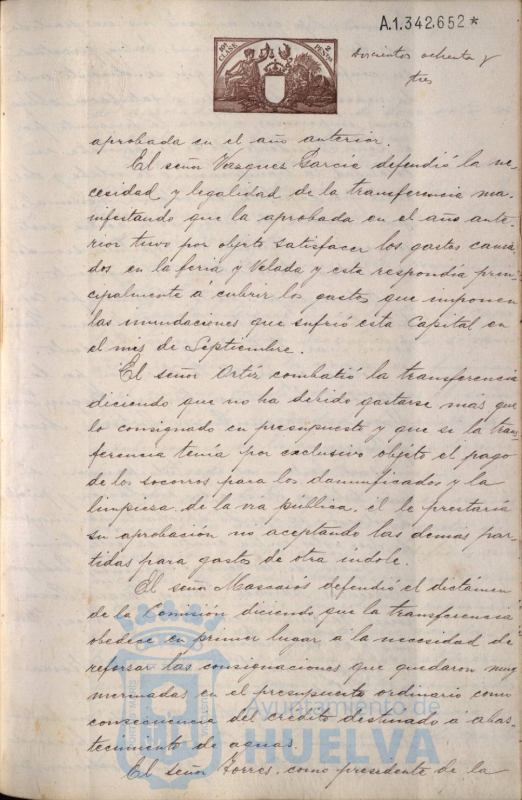 A.1.342.652*
10ª CLASE
2 PESTAS
Doscientos ochenta y
tres
aprobada en el año anterior.
El señor Vazquez Garcia defendió la ne-
cesidad y legalidad de la transferencia ma-
nifestando que la aprobada en el año ante-
rior tuvo por objeto satisfacer los gastos causa-
dos en la feria y Velada y esta respondia prin-
cipalmente á cubrir los gastos que imponen
las inundaciones que sufrió esta Capital en
el mes de Septiembre.
El señor Ortíz combatió la transferencia
diciendo que no ha debido gastarse más que
lo consignado en presupuesto y que si la trans-
ferencia tenía por exclusivo objeto el pago
de los socorros para los damnificados y la
limpiesa de la via pública, él le prestaría
su aprobación no aceptando las demás par-
tidas para gastos de otra indole.
El señor Mascarós defendió el dictámen
de la Comisión diciendo que la transferencia
obedece en primer lugar á la necesidad de
reforsar las consignaciones que quedaron muy
mermadas en el presupuesto ordinario como
consecuencia del crédito destinado á abas-
tecimiento de aguas.
El señor Torres, como presidente de la
Ayuntamiento de
HUELVA